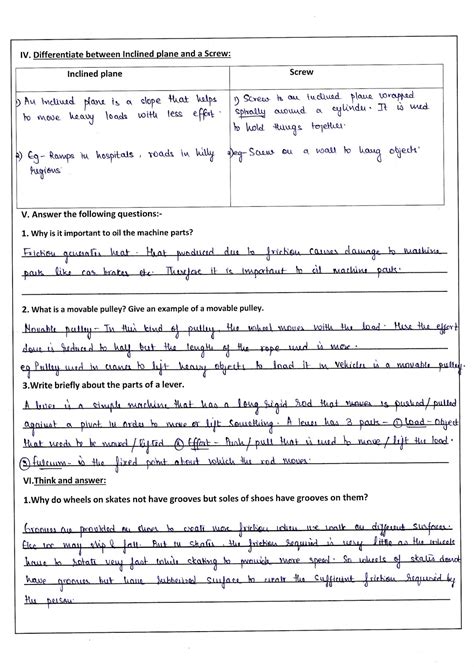 IV. Differentiate between Inclined plane and a Screw:
Inclined plane
Screw
1) An Inclined plane is a slope that helps
to move heavy loads with less effort.
2) Eg- Ramps in hospitals, roads in hilly
regions.
1) Screw is an inclined plane wrapped
spirally around a cylinder. It is used
to hold things together.
2) eg- Screw on a wall to hang objects.
V. Answer the following questions:-
1. Why is it important to oil the machine parts?
Friction generates heat. Heat produced due to friction causes damage to machine
parts like car brakes etc. Therefore it is important to oil machine parts.
2. What is a movable pulley? Give an example of a movable pulley.
Movable pulley- In this kind of pulley, the wheel moves with the load. Here the effort
done is reduced to half but the length of the rope used is more.
eg Pulley used in cranes to lift heavy objects to load it in vehicles is a movable pulley.
3.Write briefly about the parts of a lever.
A lever is a simple machine that has a long rigid rod that moves is pushed/pulled
against a pivot in order to move or lift something. A lever has 3 parts- ① Load- Object
that needs to be moved/lifted ② Effort- Push/pull that is used to move/lift the load.
③ fulcrum- is the fixed point about which the rod moves.
VI.Think and answer:
1.Why do wheels on skates not have grooves but soles of shoes have grooves on them?
Grooves are provided on shoes to create more friction when we walk on different surfaces.
Else we may slip & fall. But in skates, the friction required is very little as the wheels
have to rotate very fast while skating to provide more speed. So wheels of skates do not
have grooves but have rubberised surface to create the sufficient friction required by
the person.